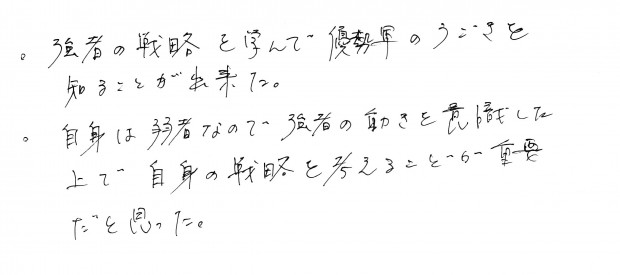 。強者の戦略を学んで優勢軍のうごきを
知ることが出来た。
。自身は弱者なので強者の動きを意識した
上で自身の戦略を考えることが重要
だと思った。